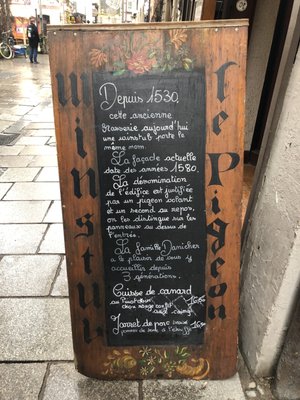 winstub
Le Pigeon
Depuis 1530
cette ancienne
Brasserie aujourd'hui
une winstub porte le
même nom.
La façade actuelle
date des années
1580.
La dénomination
de l'édifice est justifiée
par un pigeon volant
et un second au repos,
on les distingue sur les
panneaux au dessus de
l'entrée.
La famille Danicher
a le plaisir de vous y
accueillir depuis
3 générations.
Cuisse de canard
au Pinot noir
choux rouge confit
Jarret de porc braisé
pommes de terre à l'étouffée